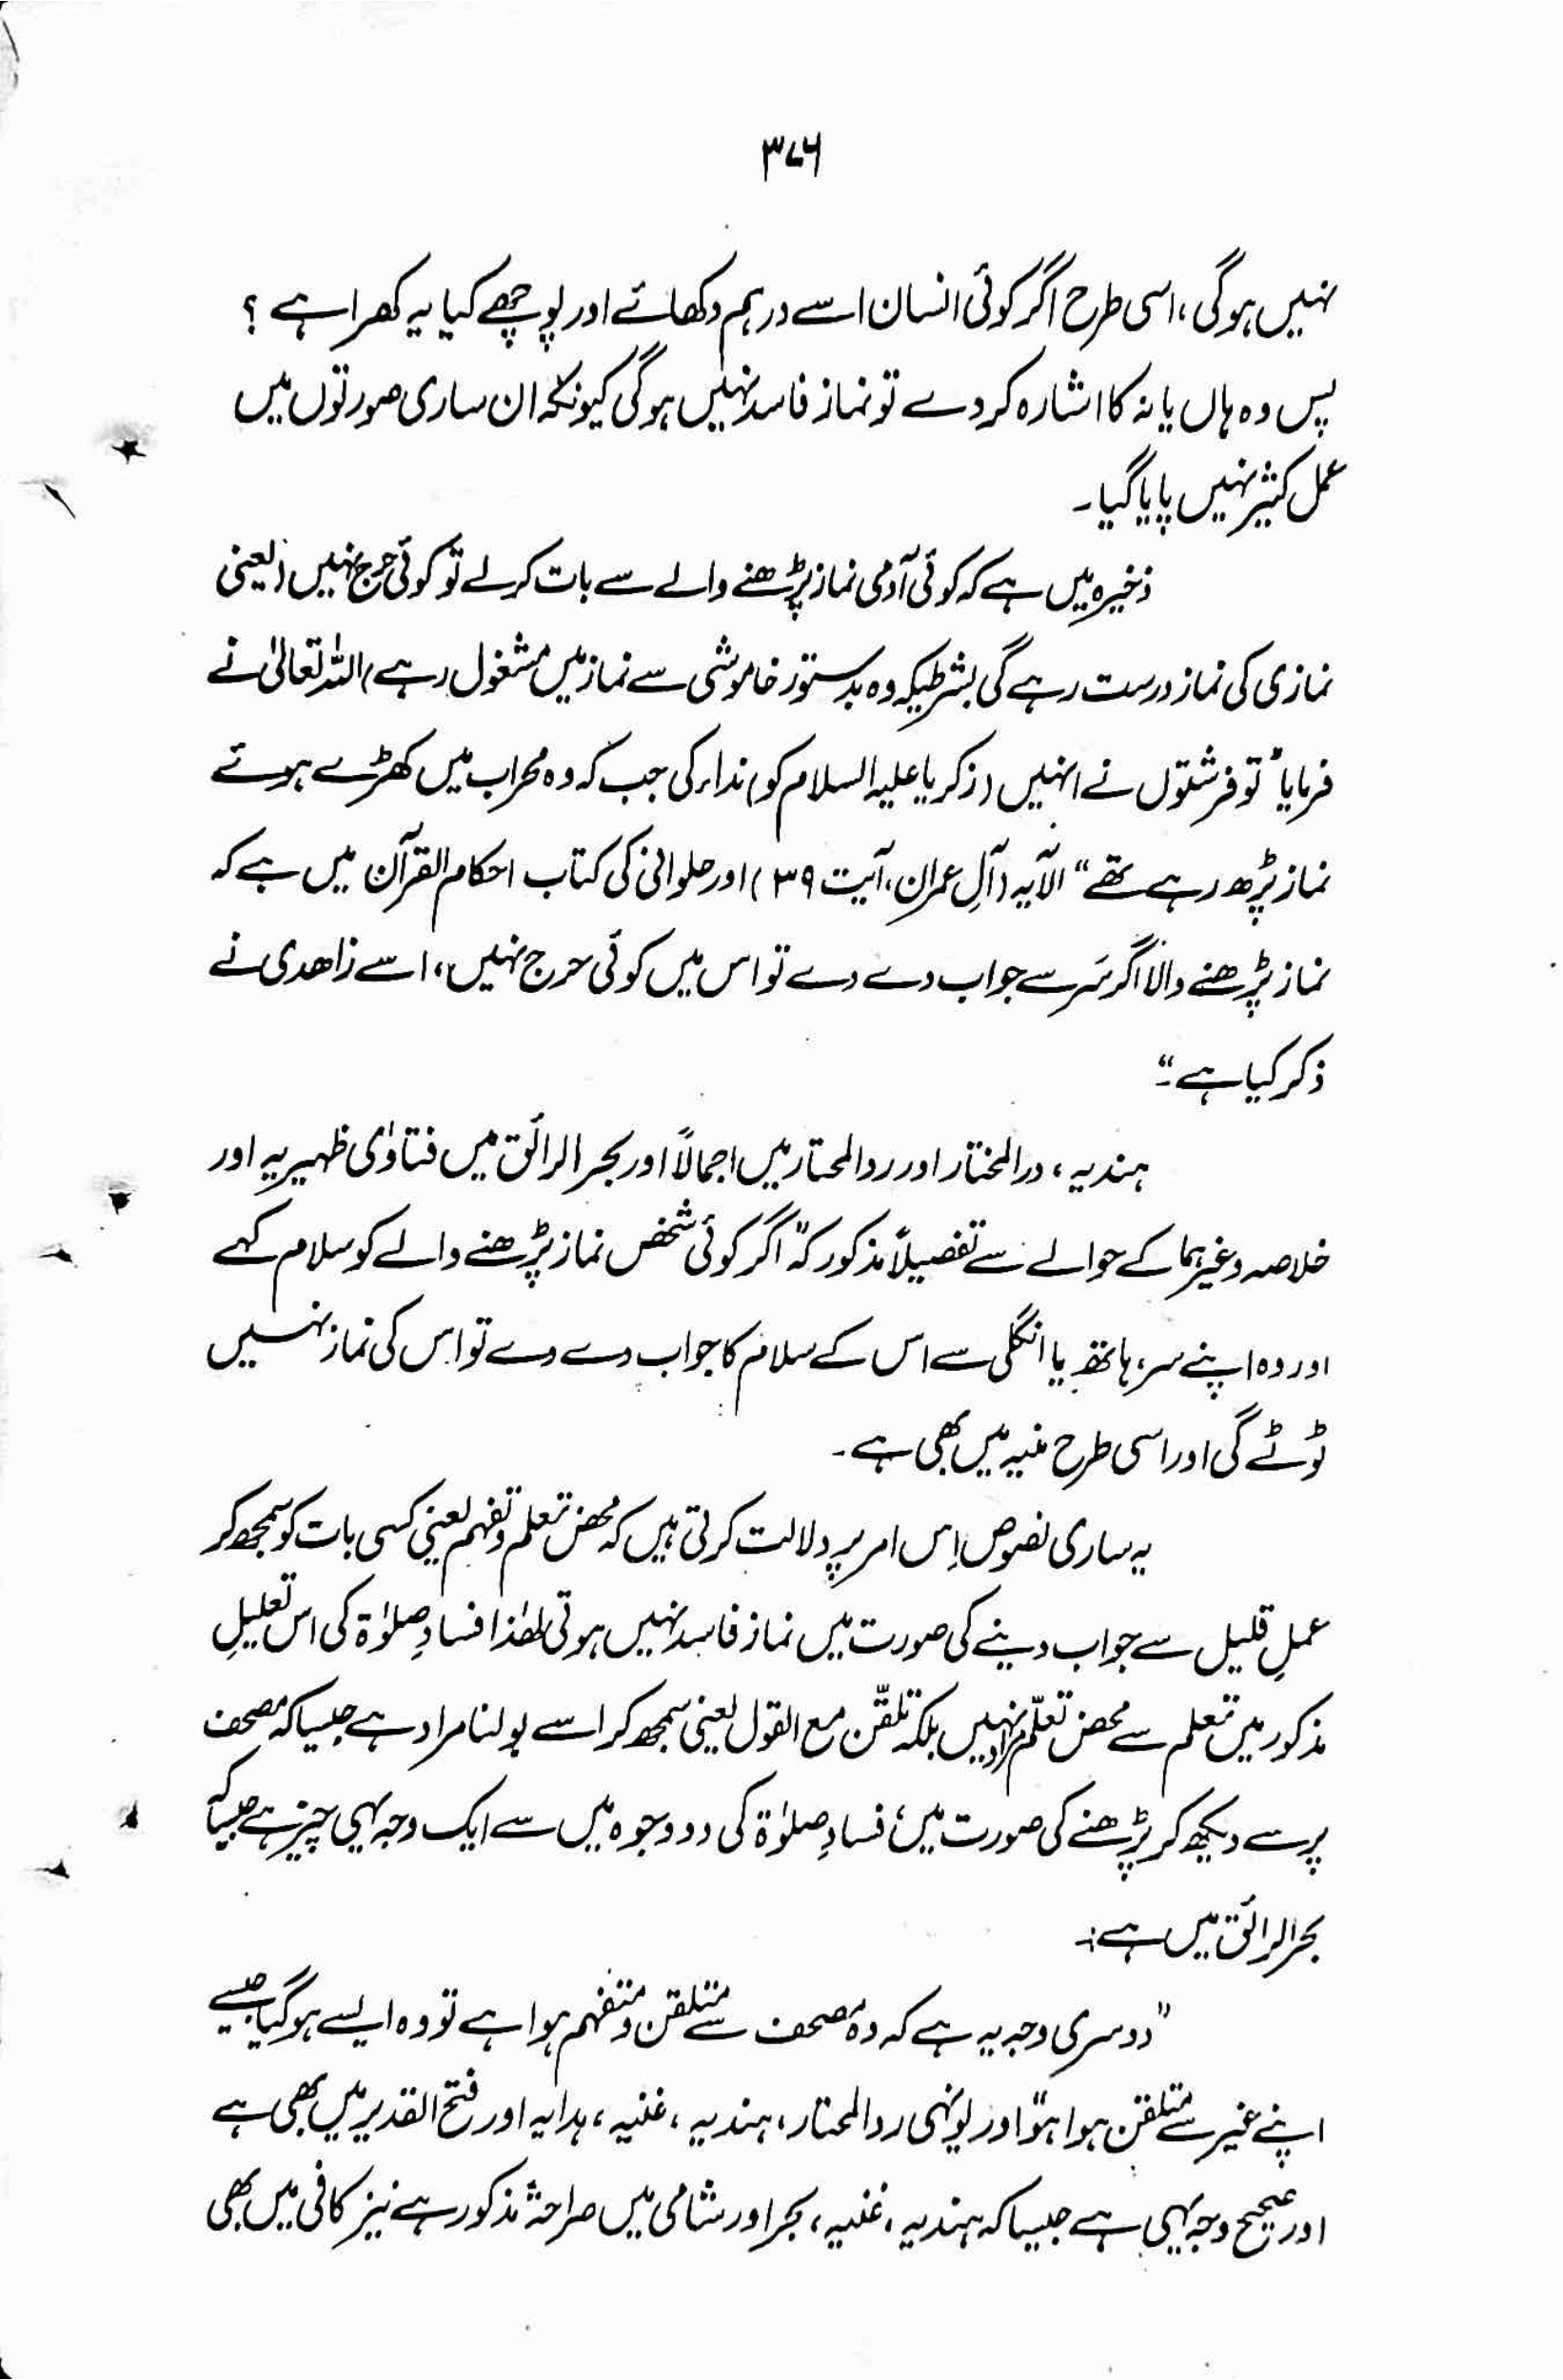 ۳۷۶
نہیں ہوگی، اسی طرح اگر کوئی انسان اسے درہم دکھائے اور پوچھے کیا یہ کھرا ہے ؟
پس وہ ہاں یا نہ کا اشارہ کر دے تو نماز فاسد نہیں ہوگی کیونکہ ان ساری صورتوں میں
عمل کثیر نہیں پایا گیا۔
ذخیرہ میں ہے کہ کوئی آدمی نماز پڑھنے والے سے بات کرلے تو کوئی حرج نہیں (یعنی
نمازی کی نماز درست رہے گی بشرطیکہ وہ بدستور خاموشی سے نماز میں مشغول رہے) اللہ تعالیٰ نے
فرمایا "تو فرشتوں نے انہیں (زکریا علیہ السلام کو) نداء کی جب کہ وہ محراب میں کھڑے ہوئے
نماز پڑھ رہے تھے" الآیہ (آلِ عمران، آیت ۳۹) اور حلوانی کی کتاب احکام القرآن میں ہے کہ
نماز پڑھنے والا اگر سَر سے جواب دے دے تو اس میں کوئی حرج نہیں، اسے زاھدی نے
ذکر کیا ہے۔"
ہندیہ، درالمختار اور ردالمحتار میں اجمالاً اور بحرالرائق میں فتاوٰی ظہیریہ اور
خلاصہ وغیرہما کے حوالے سے تفصیلاً مذکور کہ "اگر کوئی شخص نماز پڑھنے والے کو سلام کہے
اور وہ اپنے سر، ہاتھ یا انگلی سے اس کے سلام کا جواب دے دے تو اس کی نماز نہیں
ٹوٹے گی اور اسی طرح منیہ میں بھی ہے۔
یہ ساری نصوص اِس امر پر دلالت کرتی ہیں کہ محض تعلم و تفہم یعنی کسی بات کو سمجھ کر
عملِ قلیل سے جواب دینے کی صورت میں نماز فاسد نہیں ہوتی لھٰذا فسادِ صلوٰۃ کی اس تعلیلِ
مذکور میں تعلم سے محض تعلّم مراد نہیں بلکہ تلقّن مع القول یعنی سمجھ کر اسے بولنا مراد ہے جیسا کہ مصحف
پر سے دیکھ کر پڑھنے کی صورت میں، فسادِ صلوٰۃ کی دو وجوہ میں سے ایک وجہ یہی چیز ہے جیسا کہ
بحرالرائق میں ہے:۔
"دوسری وجہ یہ ہے کہ وہ مصحف سے متلقن و متفہم ہوا ہے تو وہ ایسے ہوگیا جیسے
اپنے غیر سے متلقن ہوا ہو" اور یونہی ردالمحتار، ہندیہ، غنیہ، ہدایہ اور فتح القدیر میں بھی ہے
اور صحیح وجہ یہی ہے جیسا کہ ہندیہ، غنیہ، بحر اور شامی میں صراحۃً مذکور ہے نیز کافی میں بھی